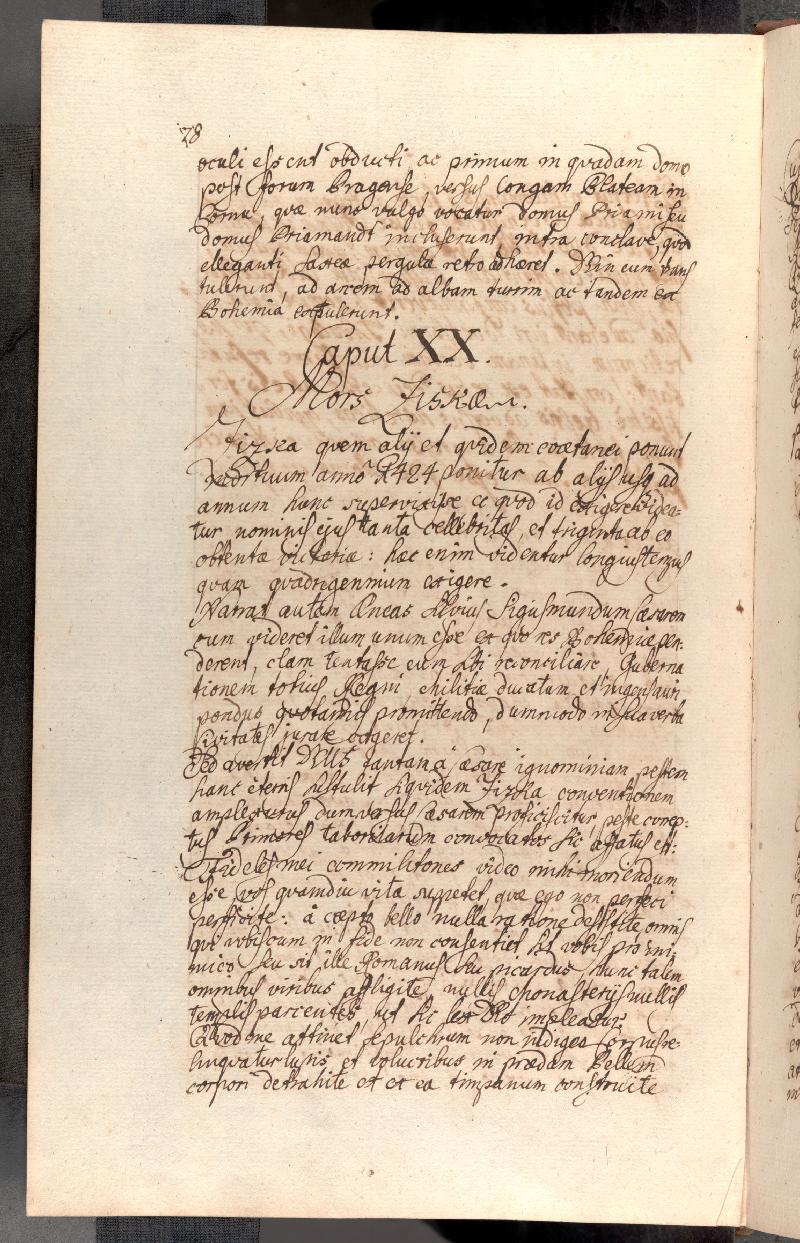 78
oculi essent obducti ac primum in quadam domo
post forum Pragense, versus longam Plateam in
Cornu, quæ nunc vulgo vocatur domus Priami seu
domus Priamandt incluserunt, intra conclave, quod
elleganti saxeæ pergulæ retro adhæret. Din eum trans
tulerunt, ad arcem ad albam turrim ac tandem ex
Bohemia expulerunt.
Caput XX.
Mors Ziskæ.
Zizka quem alij et quidem coætanei ponunt
mortuum anno 1424 ponitur ab alijs usq ad
annum hunc supervixisse et quod id exigere videa-
tur nominis ejus tanta cellebritas, et triginta ab eo
obtentæ victoriæ: hæc enim videntur longius tempus
quam quadriennium exigere.
Narrat autem Æneas Silvius Sigismundum Cæsarem
cum videret illum unum esse ex quo res Bohemiæ pen-
derent, clam tentasse eum sibi reconciliare, Guberna
tionem totius Regni, militiæ ducatum et ingens auri
pondus quotannis promittendo, dummodo in sua verba
Civitates jurare cogeret.
Sed avertit DEUS tantam à Cæsare ignominiam, pestem
hanc è terris sustulit siquidem Zizka conventionem
amplexurus dum versus Cæsarem proficiscitur, peste corep-
tus Primores taboritarum convocatos sic affatus est:
Fideles mei commilitones video mihi moriendum
esse vos quamdiu vita suppetet, quæ ego non perfeci
perficite: à cæpto bello nulla ratione desistite, omnis
qui vobiscum in fide non consentiet sit vobis pro ini-
mico, seu sit ille Romanus seu picardus, hunc talem
omnibus viribus affligite, nullis Monasterijs nullis
templis parcentes, ut sic lex DEI impleatur.
Quod me attinet sepulchrum non indigeo Corpus re-
linquatur lupis et volucribus in prædam Pellem
corpori detrahite et ex ea timpanum construite